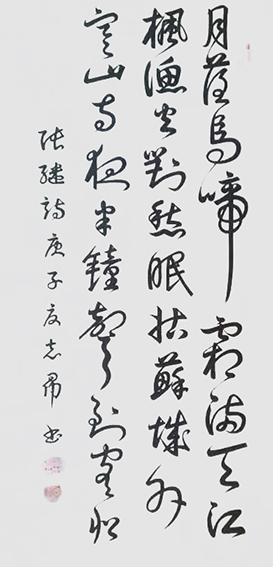 月落烏啼霜满天江
楓渔火對愁眠姑蘇城外
寒山寺夜半鐘聲到客船
张继詩庚子友志帚书